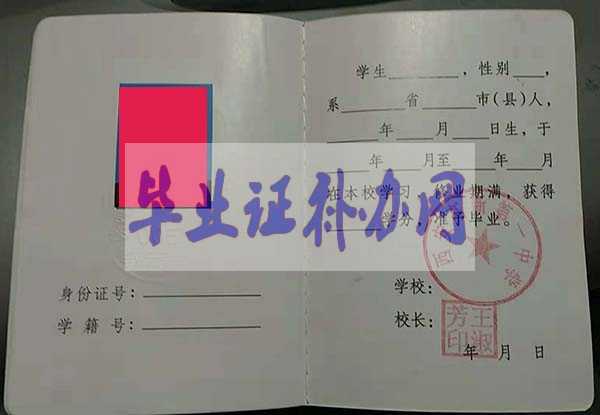 身份证号：
学 籍 号：
学生________，性别___，
系______省______市(县)人，
______年____月____日生，于
____年____月至____年__月
在本校学习，修业期满，获得
____学分，准予毕业。
学校：
一中学
校长：
王淑芳印
年 月 日
毕业证补办网